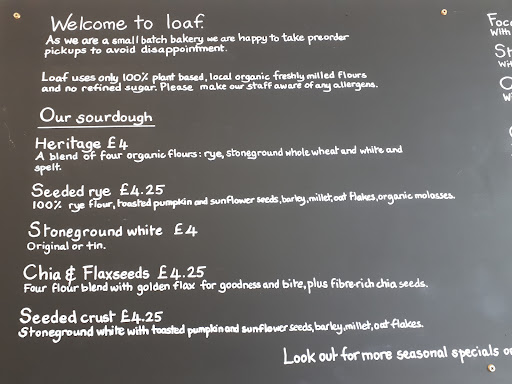 Welcome to loaf.
As we are a small batch bakery we are happy to take preorder
pickups to avoid disappointment.
Loaf uses only 100% plant based, local organic freshly milled flours
and no refined sugar. Please make our staff aware of any allergens.
Our sourdough
Heritage £4
A blend of four organic flours: rye, stoneground whole wheat and white and
spelt.
Seeded rye £4.25
100% rye flour, toasted pumpkin and sunflower seeds, barley, millet, oat flakes, organic molasses.
Stoneground white £4
Original or tin.
Chia & Flaxseeds £4.25
Four flour blend with golden flax for goodness and bite, plus fibre-rich chia seeds.
Seeded crust £4.25
Stoneground white with toasted pumpkin and sunflower seeds, barley, millet, oat flakes.
Look out for more seasonal specials